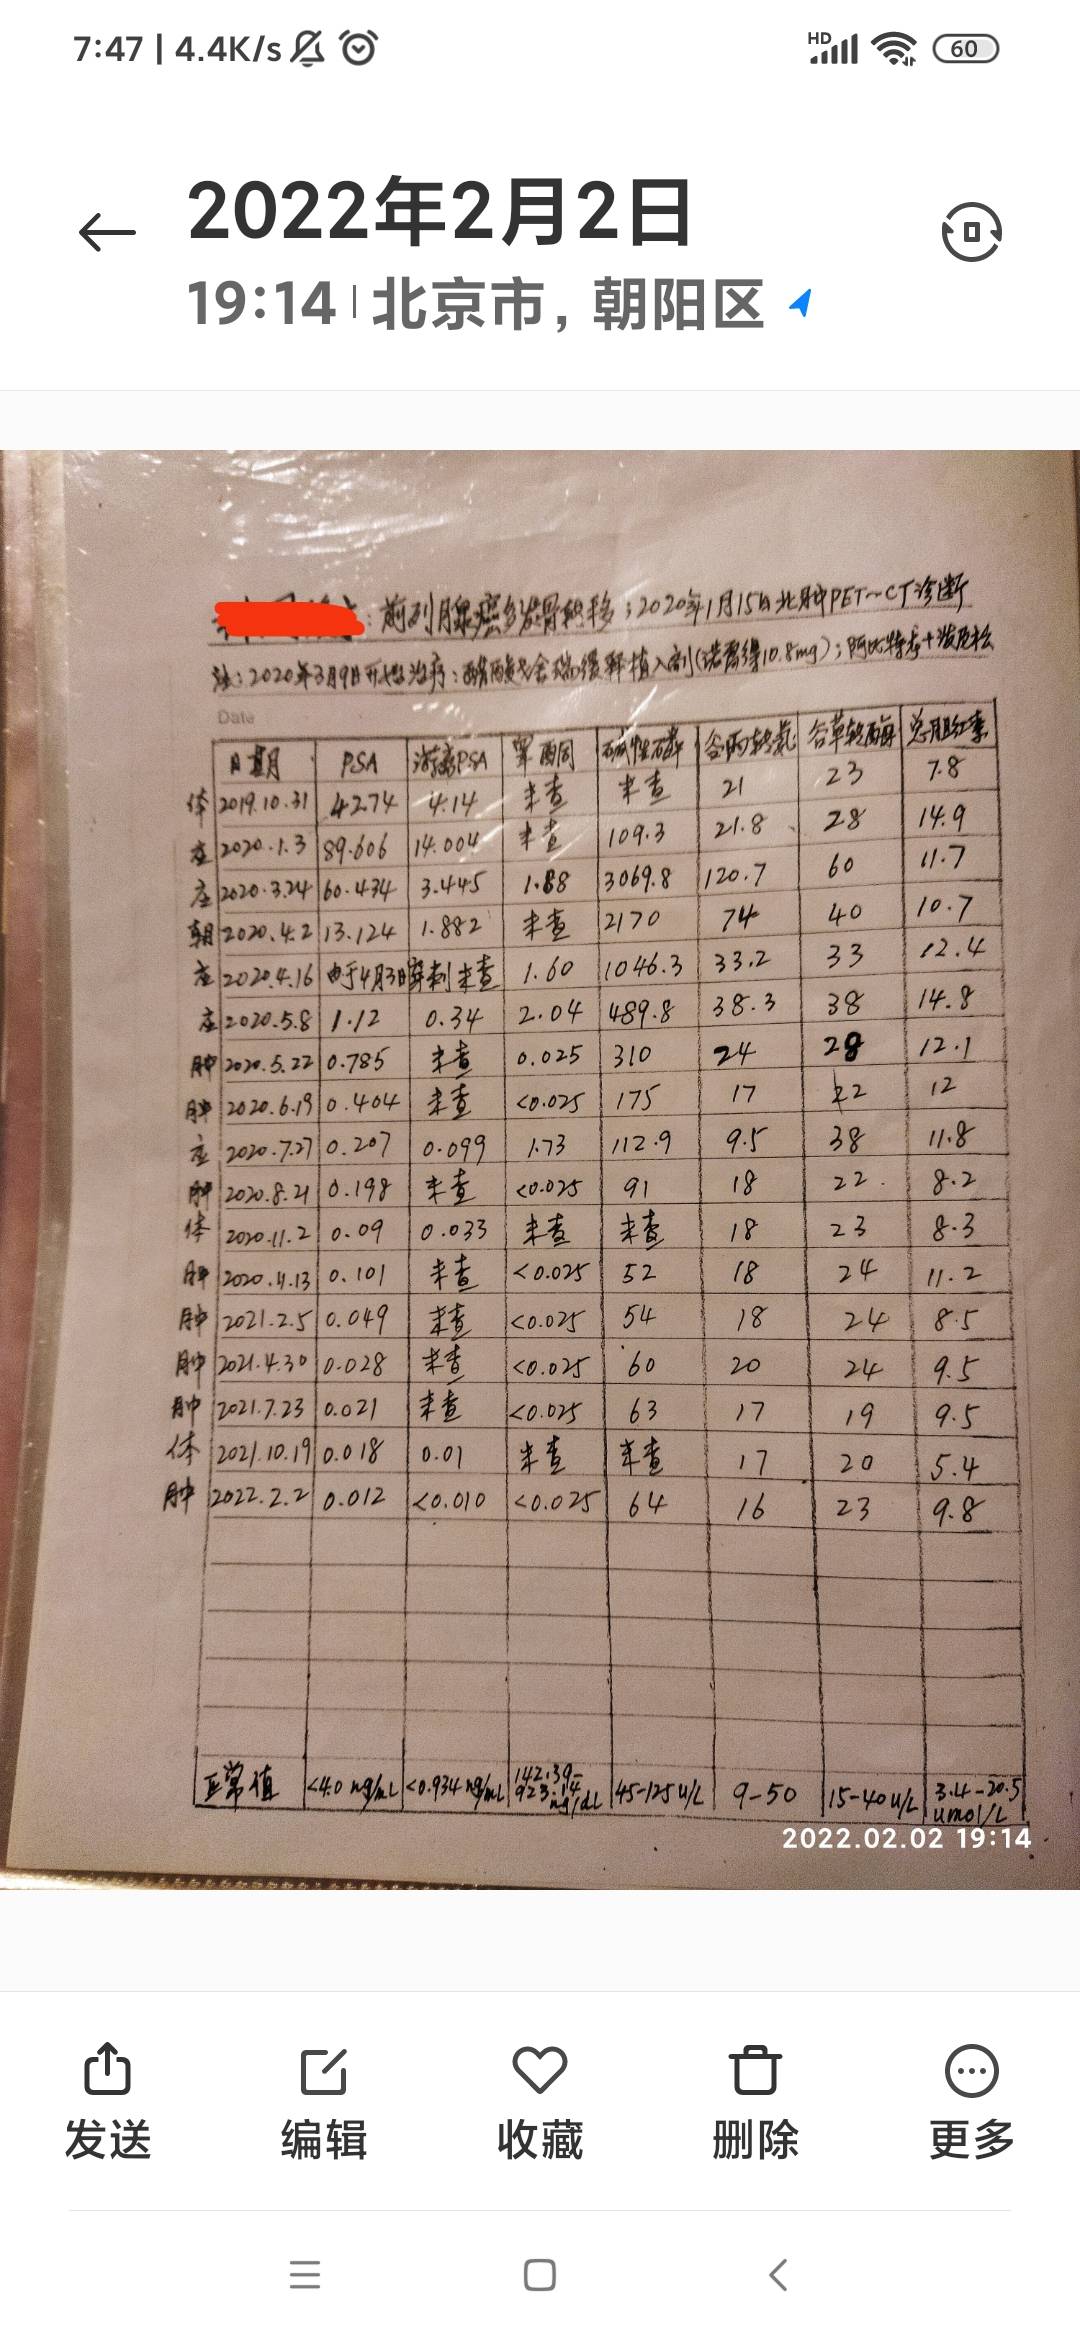 7:47 | 4.4K/s HD 60
2022年2月2日
19:14 | 北京市, 朝阳区
: 前列腺癌多发骨转移; 2020年1月15日北肿PET-CT诊断
注: 2020年3月9日开始治疗: 醋酸戈舍瑞缓释植入剂(诺雷得10.8mg); 阿比特龙+泼尼松
Date
日期 PSA 游离PSA 睾酮 碱性磷 谷丙转氨 谷草转酶 总胆红素
体 2019.10.31 4.14 未查 未查 21 23 7.8
2020.1.3 89.606 14.004 未查 109.3 21.8 28 14.9
2020.3.24 60.434 3.445 1.88 3069.8 120.7 60 11.7
朝 2020.4.2 13.124 1.882 未查 2170 74 40 10.7
2020.4.16 由于4月3日穿刺未查 1.60 1046.3 33.2 33 12.4
2020.5.8 1.12 0.34 2.04 489.8 38.3 38 14.8
肿 2020.5.22 0.785 未查 0.025 310 24 28 12.1
肿 2020.6.19 0.404 未查 <0.025 175 17 22 12
2020.7.27 0.207 0.099 1.73 112.9 9.5 38 11.8
肿 2020.8.21 0.198 未查 <0.025 91 18 22 8.2
体 2020.11.2 0.09 0.033 未查 未查 18 23 8.3
肿 2020.11.13 0.101 未查 <0.025 52 18 24 11.2
肿 2021.2.5 0.049 未查 <0.025 54 18 24 8.5
肿 2021.4.30 0.028 未查 <0.025 60 20 24 9.5
肿 2021.7.23 0.021 未查 <0.025 63 17 19 9.5
体 2021.10.19 0.018 0.01 未查 未查 17 20 5.4
肿 2022.2.2 0.012 <0.010 <0.025 64 16 23 9.8
正常值 <4.0 ng/mL <0.934 ng/mL 142.39-923.14 ng/dL 45-125 u/L 9-50 15-40 u/L 3.4-20.5 umol/L
2022.02.02 19:14
发送 编辑 收藏 删除 更多